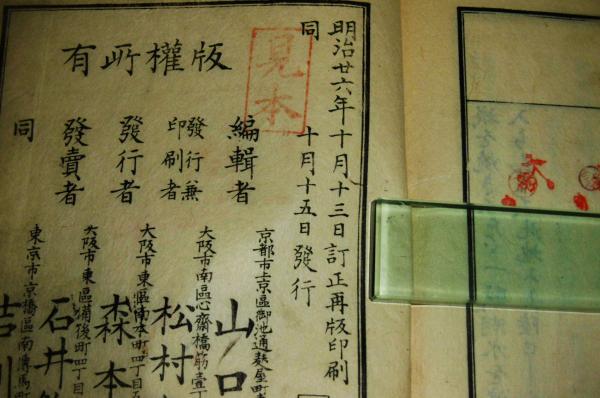 明治廿六年十月十三日訂正再版印刷
同 十月十五日發行
見本
版權所有
編輯者
京都市上京區御池通麩屋町
山口
發行兼印刷者
大阪市南區心齋橋筋壹丁
松村
發行者
大阪市東區南本町四丁目
森本
發賣者
大阪市東區備後町四丁目
石井
同
東京市京橋區南傳馬町
吉川